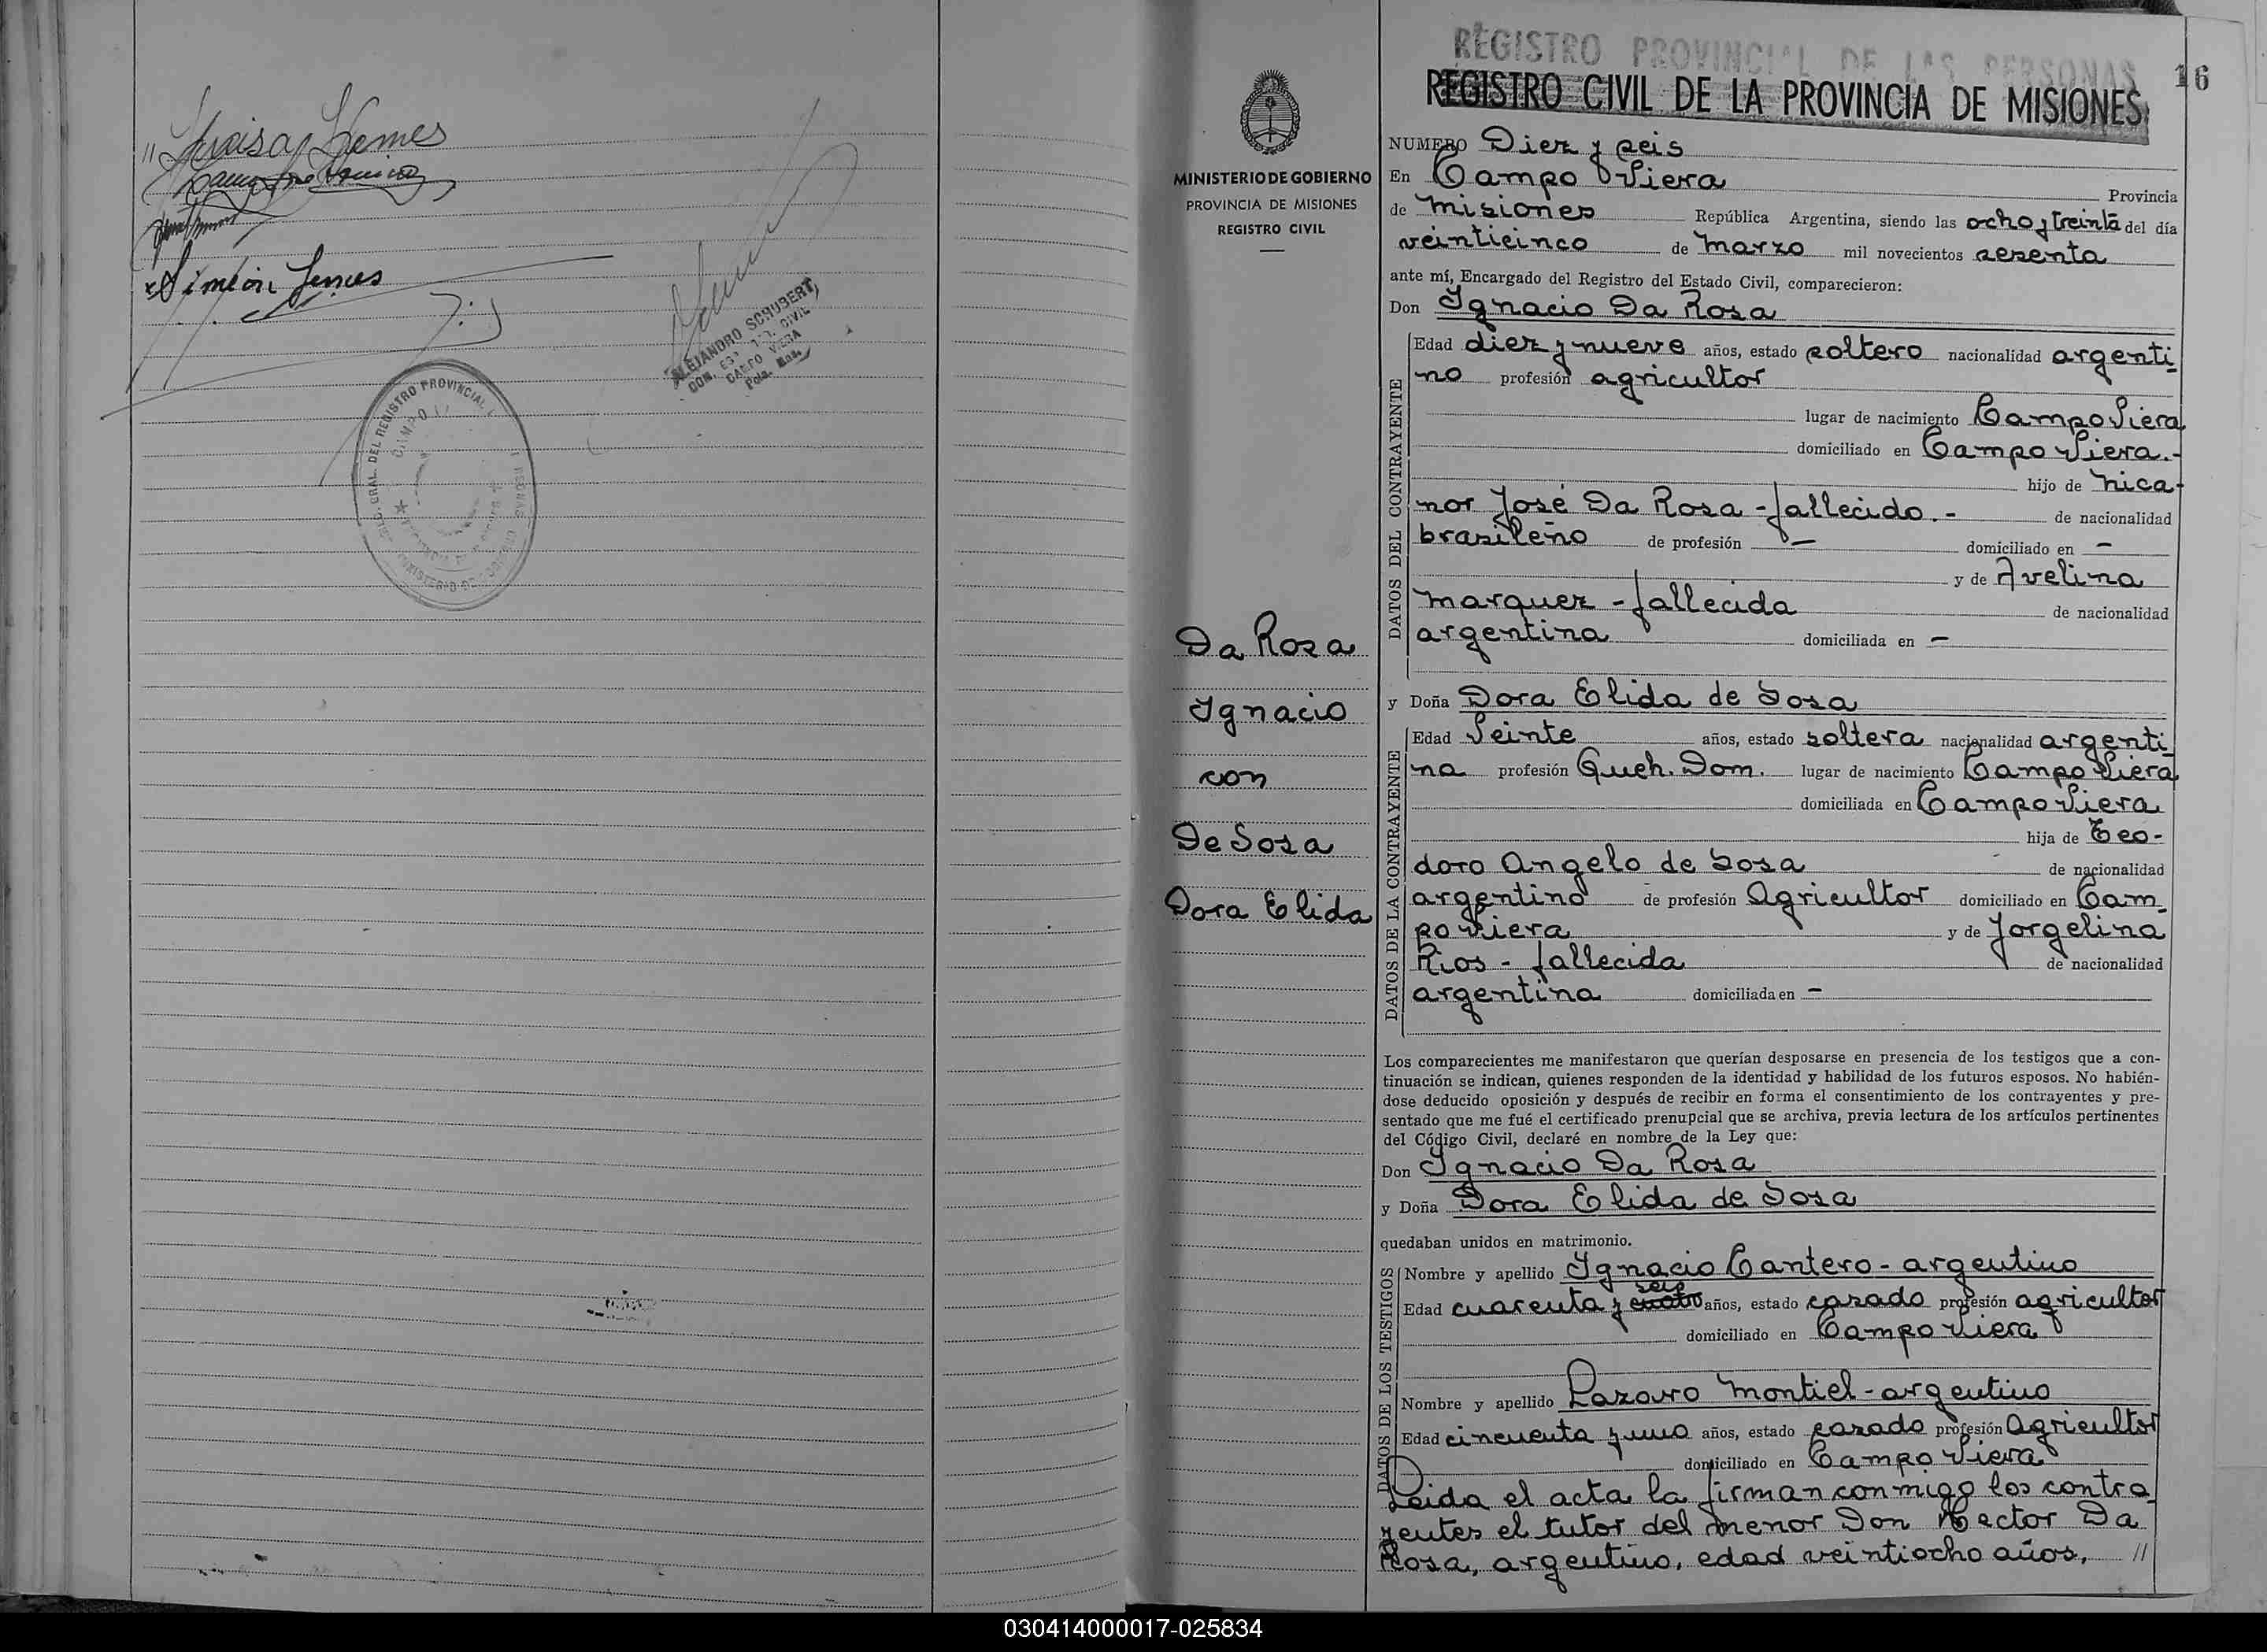 Simeón
ALEJANDRO SCHUBERT
CAMPO VIERA
REGISTRO PROVINCIAL DE LAS PERSONAS
REGISTRO CIVIL DE LA PROVINCIA DE MISIONES
16
MINISTERIO DE GOBIERNO
PROVINCIA DE MISIONES
REGISTRO CIVIL
Da Rosa
Ignacio
con
De Sosa
Dora Elida
NUMERO Diez y seis
En Campo Viera Provincia
de Misiones República Argentina, siendo las ocho y treinta del día
veinticinco de Marzo mil novecientos sesenta
ante mí, Encargado del Registro del Estado Civil, comparecieron:
Don Ignacio Da Rosa
DATOS DEL CONTRAYENTE
Edad diez y nueve años, estado soltero nacionalidad argenti-
no profesión agricultor
lugar de nacimiento Campo Viera
domiciliado en Campo Viera.-
hijo de Nica-
nor José Da Rosa - fallecido.- de nacionalidad
brasileño de profesión — domiciliado en —
y de Avelina
Marquez - fallecida de nacionalidad
argentina domiciliada en —
y Doña Dora Elida de Sosa
DATOS DE LA CONTRAYENTE
Edad Veinte años, estado soltera nacionalidad argenti-
na profesión Queh. Dom. lugar de nacimiento Campo Viera
domiciliada en Campo Viera
hija de Teo-
doro Angelo de Sosa de nacionalidad
argentino de profesión Agricultor domiciliado en Cam-
po Viera y de Jorgelina
Rios - fallecida de nacionalidad
argentina domiciliada en —
Los comparecientes me manifestaron que querían desposarse en presencia de los testigos que a con-
tinuación se indican, quienes responden de la identidad y habilidad de los futuros esposos. No habién-
dose deducido oposición y después de recibir en forma el consentimiento de los contrayentes y pre-
sentado que me fué el certificado prenupcial que se archiva, previa lectura de los artículos pertinentes
del Código Civil, declaré en nombre de la Ley que:
Don Ignacio Da Rosa
y Doña Dora Elida de Sosa
quedaban unidos en matrimonio.
DATOS DE LOS TESTIGOS
Nombre y apellido Ignacio Cantero - argentino
seis
Edad cuarenta y cuatro años, estado casado profesión agricultor
domiciliado en Campo Viera
Nombre y apellido Lazaro Montiel - argentino
Edad cincuenta y uno años, estado casado profesión Agricultor
domiciliado en Campo Viera
Leida el acta la firman conmigo los contra-
yentes el tutor del menor Don Hector Da
Rosa, argentino, edad veintiocho años, //
030414000017-025834